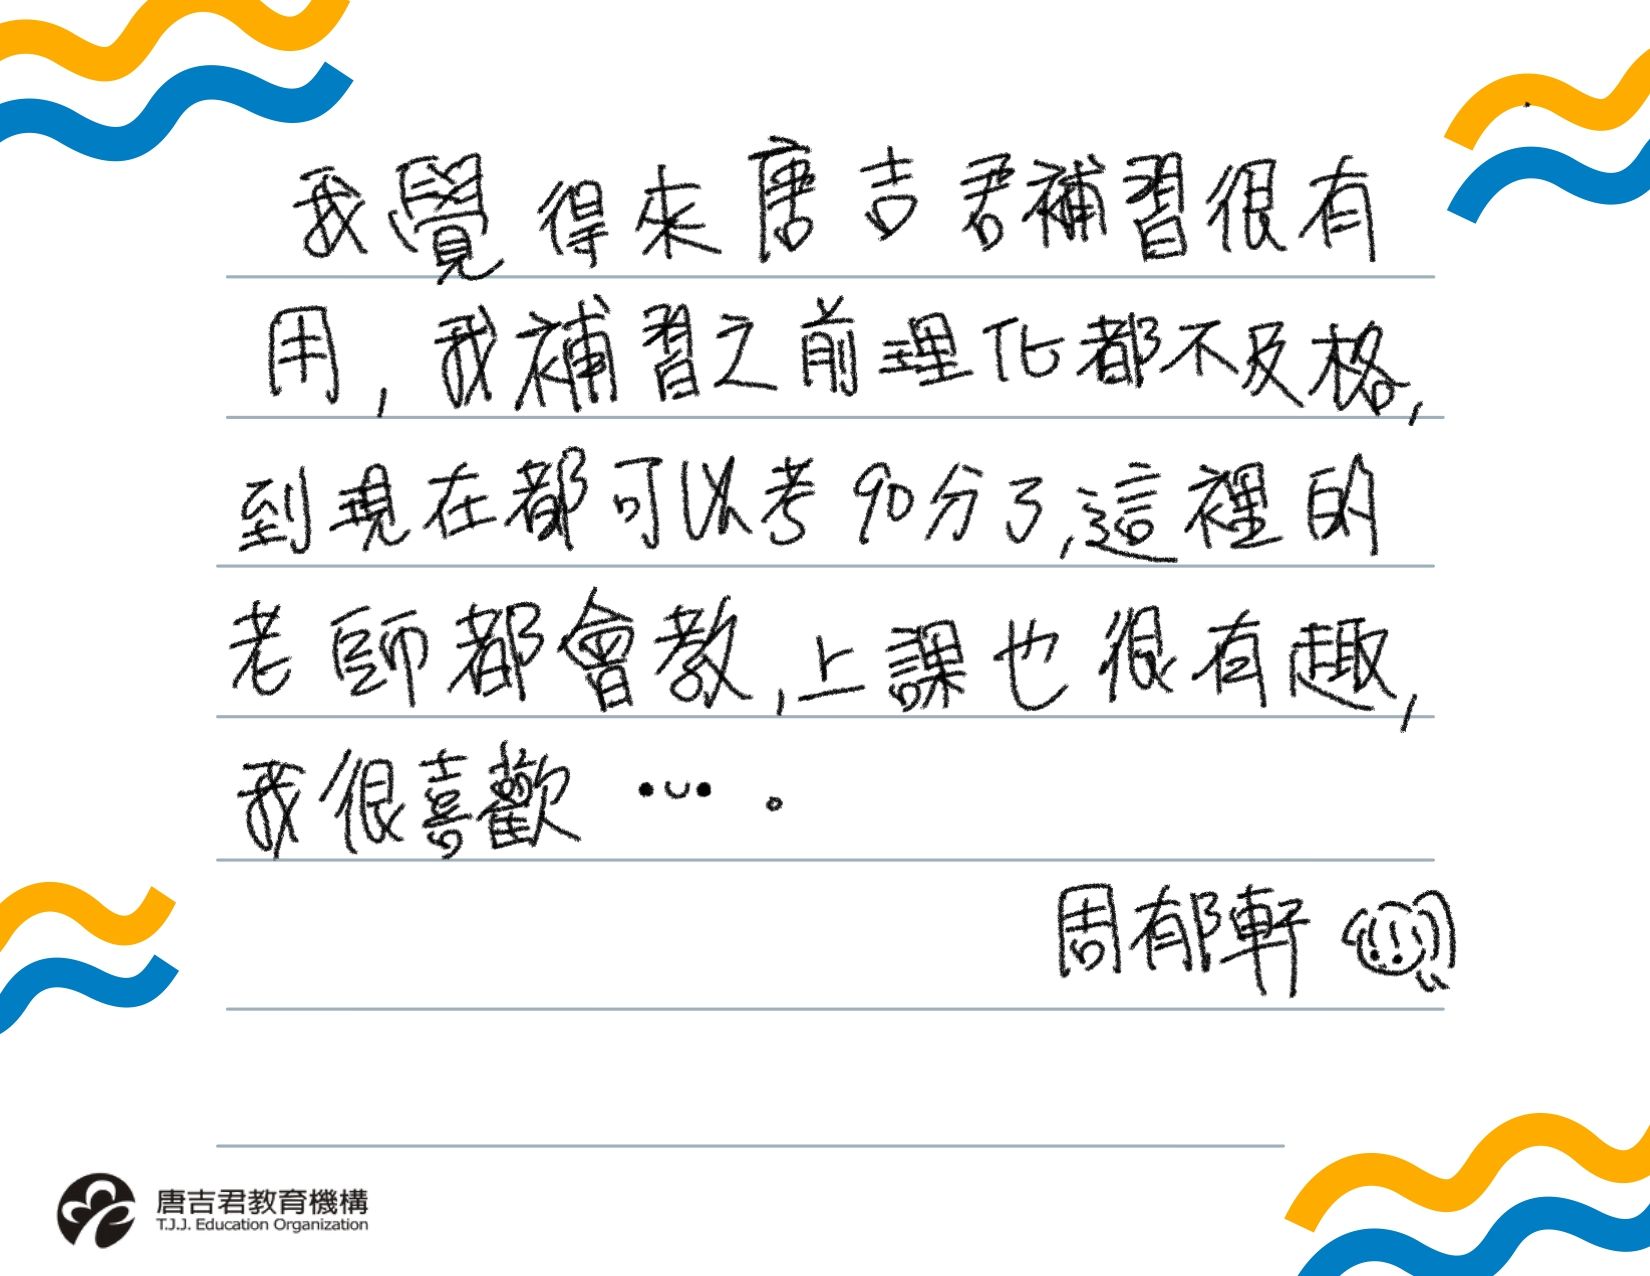 我覺得來唐吉君補習很有
用,我補習之前理化都不及格,
到現在都可以考90分了,這裡的
老師都會教,上課也很有趣,
我很喜歡•ᴗ•。
周郁軒
唐吉君教育機構
T.J.J. Education Organization